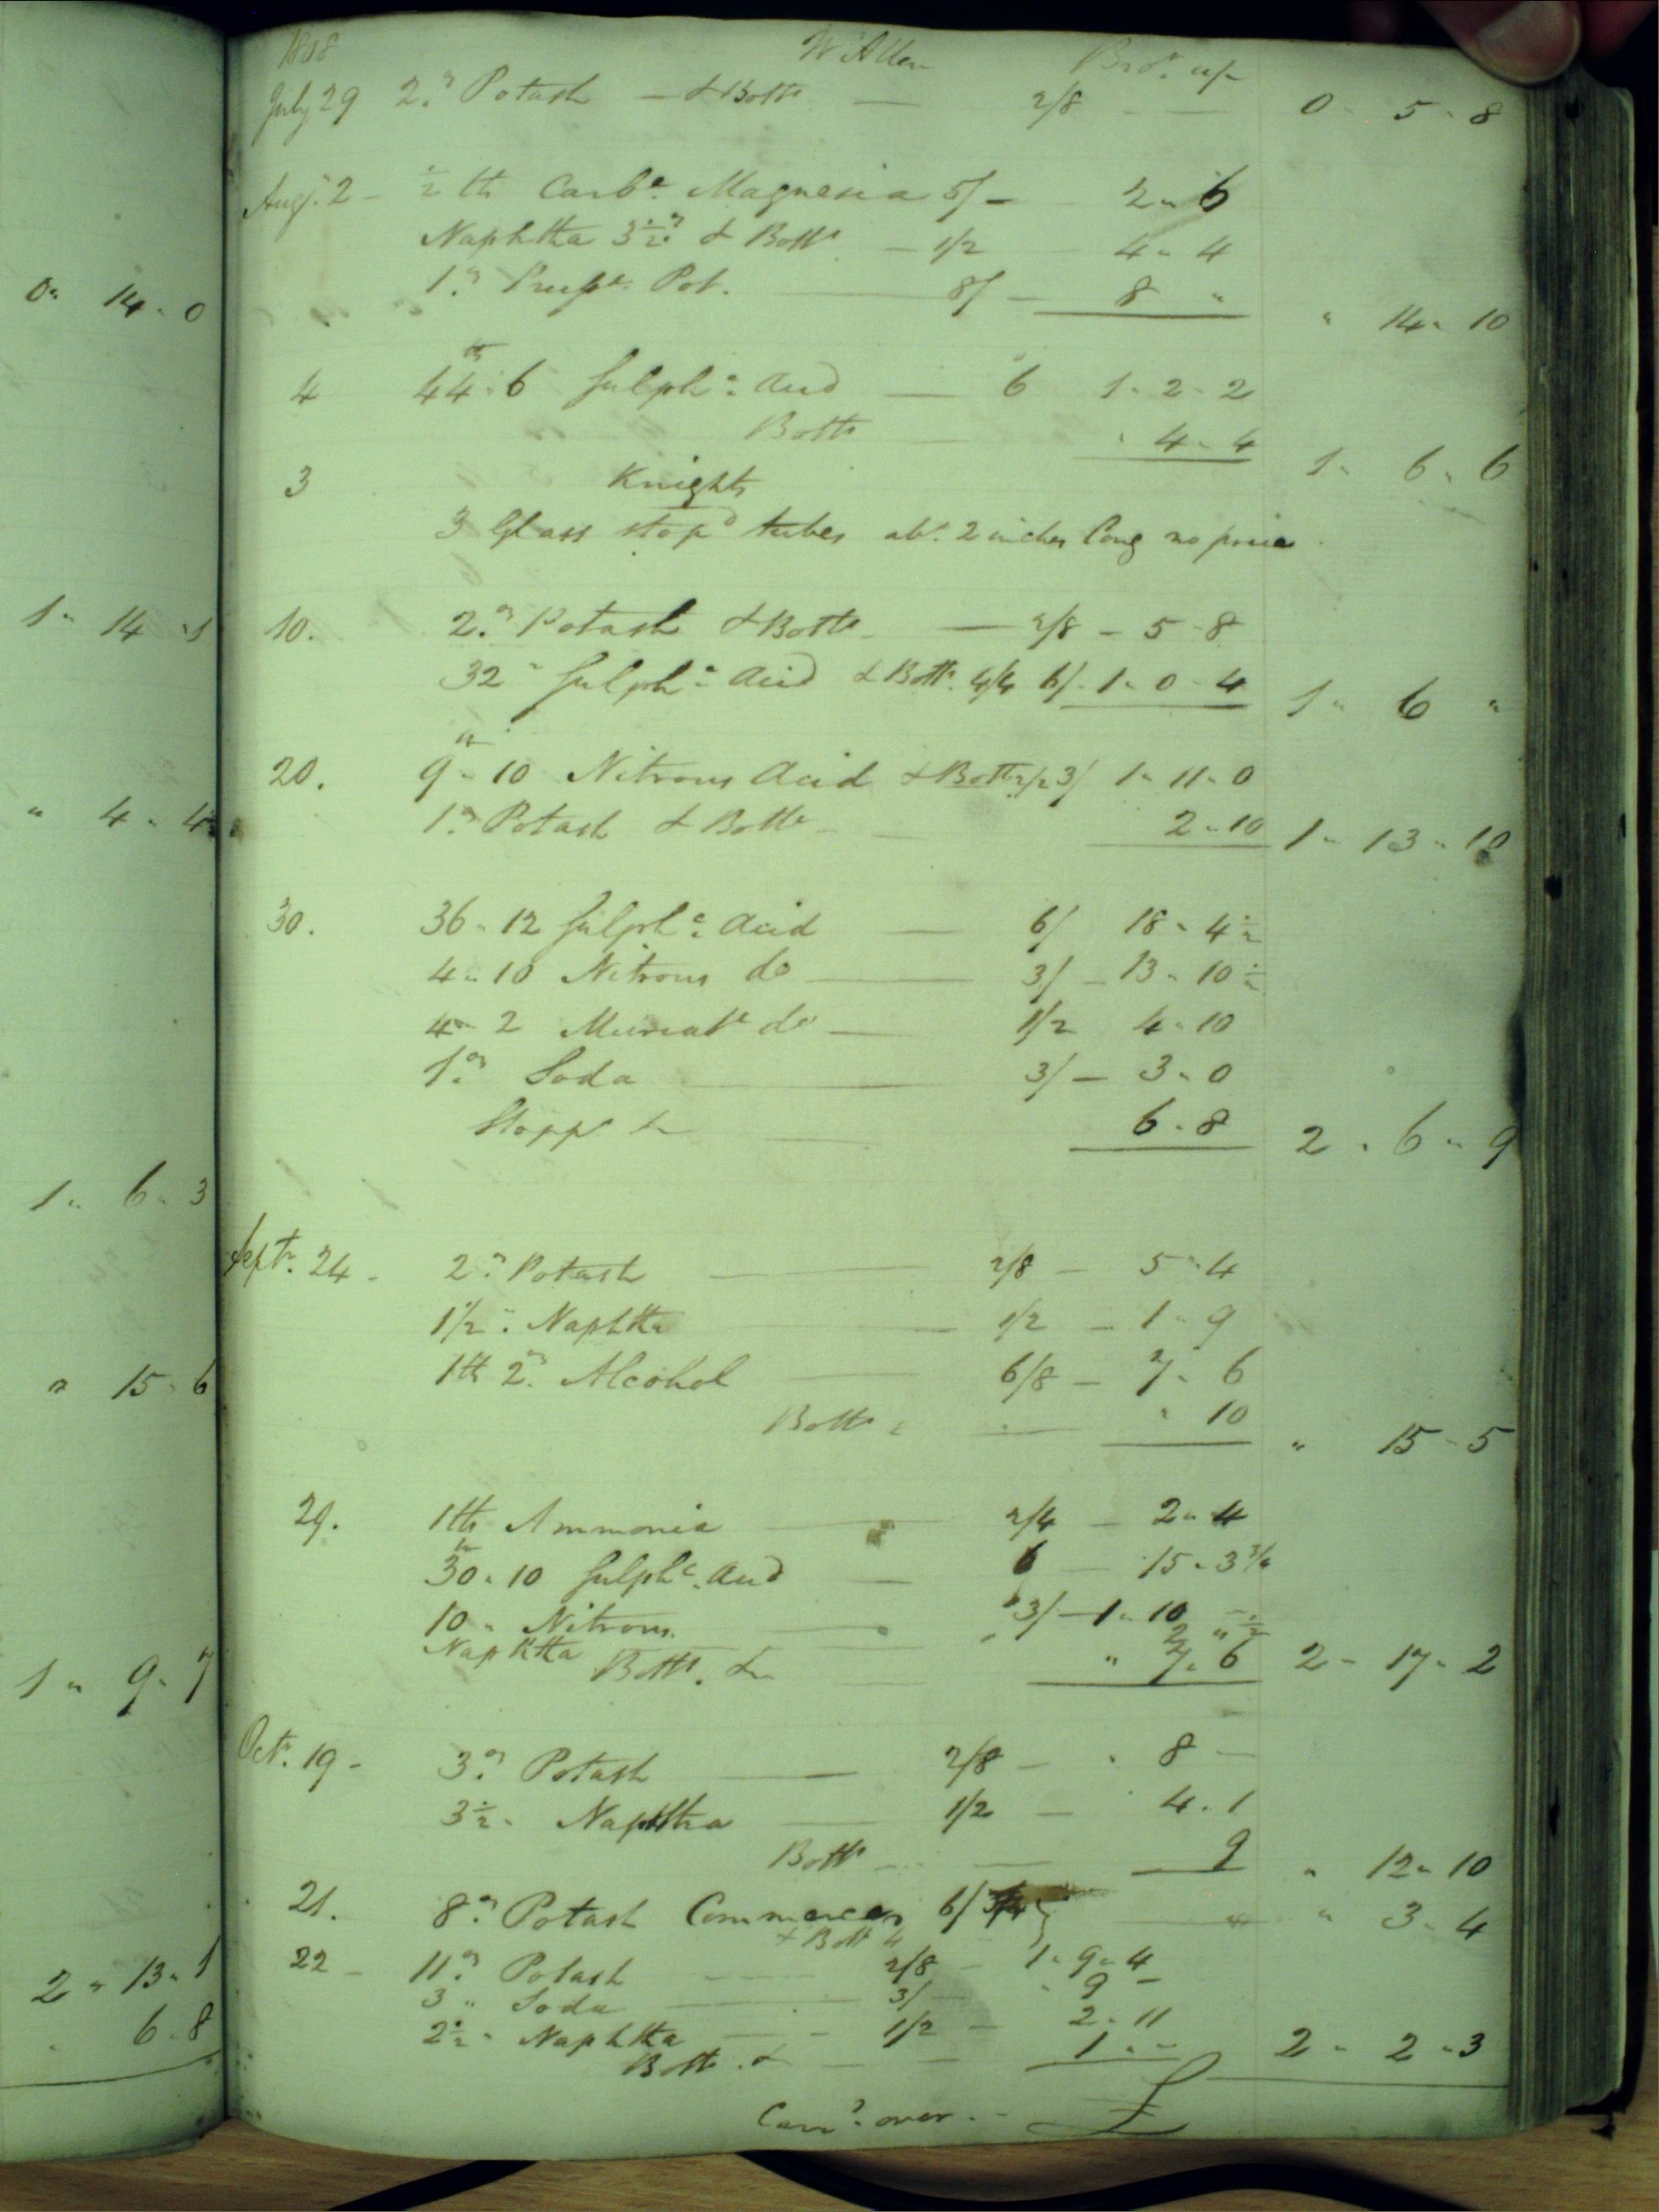 0 " 14 " 0
1 " 14 " 1
" 4 " 4
1 " 6 " 3
" 15 " 6
1 " 9 " 7
2 " 13 " 1
6 " 8
1808 W Allen Bro.t up
July 29 2 ℥ Potash — & Bott — 2/8 — 0 " 5 " 8
Aug.t 2 — ½ lb Carb.e Magnesia 5/ — 2 " 6
Naphtha 3½ ℥ & Bott — 1/2 4 " 4
1 ℥ Pot. — 8/ — 8 " " 14 " 10
4 44 lb " 6 Sulph.c Acid — 6 1 " 2 " 2
Botts — " 4 " 4 1 " 6 " 6
3 Knights
3 Glass stop.d tubes ab.t 2 inches long no price
10. 2 ℥ Potash & Botts — 2/8 — 5 " 8
32 " Sulph.c Acid & Bott 4/4 6/ 1 " 0 " 4 1 " 6 "
20. 9 lb " 10 Nitrous Acid & Botts 2/2 3/ 1 " 11 " 0
1 ℥ Potash & Botts — 2 " 10 1 " 13 " 10
30. 36 " 12 Sulph.c Acid — 6/ 18 " 4½
4 " 10 Nitrous do — 3/ — 13 " 10½
4 " 2 Muriat.c do — 1/2 4 " 10
1 ℥ Soda — 3/ — 3 " 0
Stopp.d — 6 " 8 2 " 6 " 9
Sept.r 24 — 2 ℥ Potash — 2/8 — 5 " 4
1½ " Naphtha — 1/2 — 1 " 9
1 lb 2 ℥ Alcohol — 6/8 — 7 " 6
Botts — " 10 " 15 " 5
29. 1 lb Ammonia — 2/4 — 2 " 4
30 lb " 10 Sulph.c Acid — 6 — 15 " 3¾
10 " Nitrous — 3/ — 1 " 10 —
Naphtha 2 " ½
Botts. & — " 7 " 6 2 " 17 " 2
Oct.r 19 — 3 ℥ Potash — 2/8 — " 8 —
3½ " Naphtha — 1/2 — 4 " 1
Bott — 9 " 12 " 10
21. 8 ℥ Potash Commerce 6/ " 3 " 4
& Bott 4
22 — 11 ℥ Potash — 2/8 — 1 " 9 " 4
3 " Soda — 3/ — " 9 —
2½ " Naphtha — 1/2 — 2 " 11
Botts & — 1 " — 2 " 2 " 3
Carr.d over — £